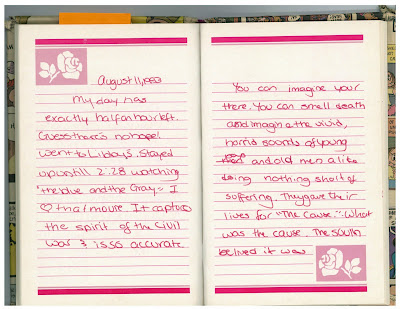 August 11, 1983
My day has
exactly half an hour left.
Guess there's no hope I
went to Libby's. Stayed
up until 2:28 watching
"the blue and the Gray" I
♡ that movie. It captures
the spirit of the Civil
War & is so accurate.
You can imagine your
there. You can smell death
and imagine the vivid,
horrid sounds of young
and old men alike
doing nothing short of
suffering. They gave their
lives for "The Cause." What
was the cause. The South
belived it was